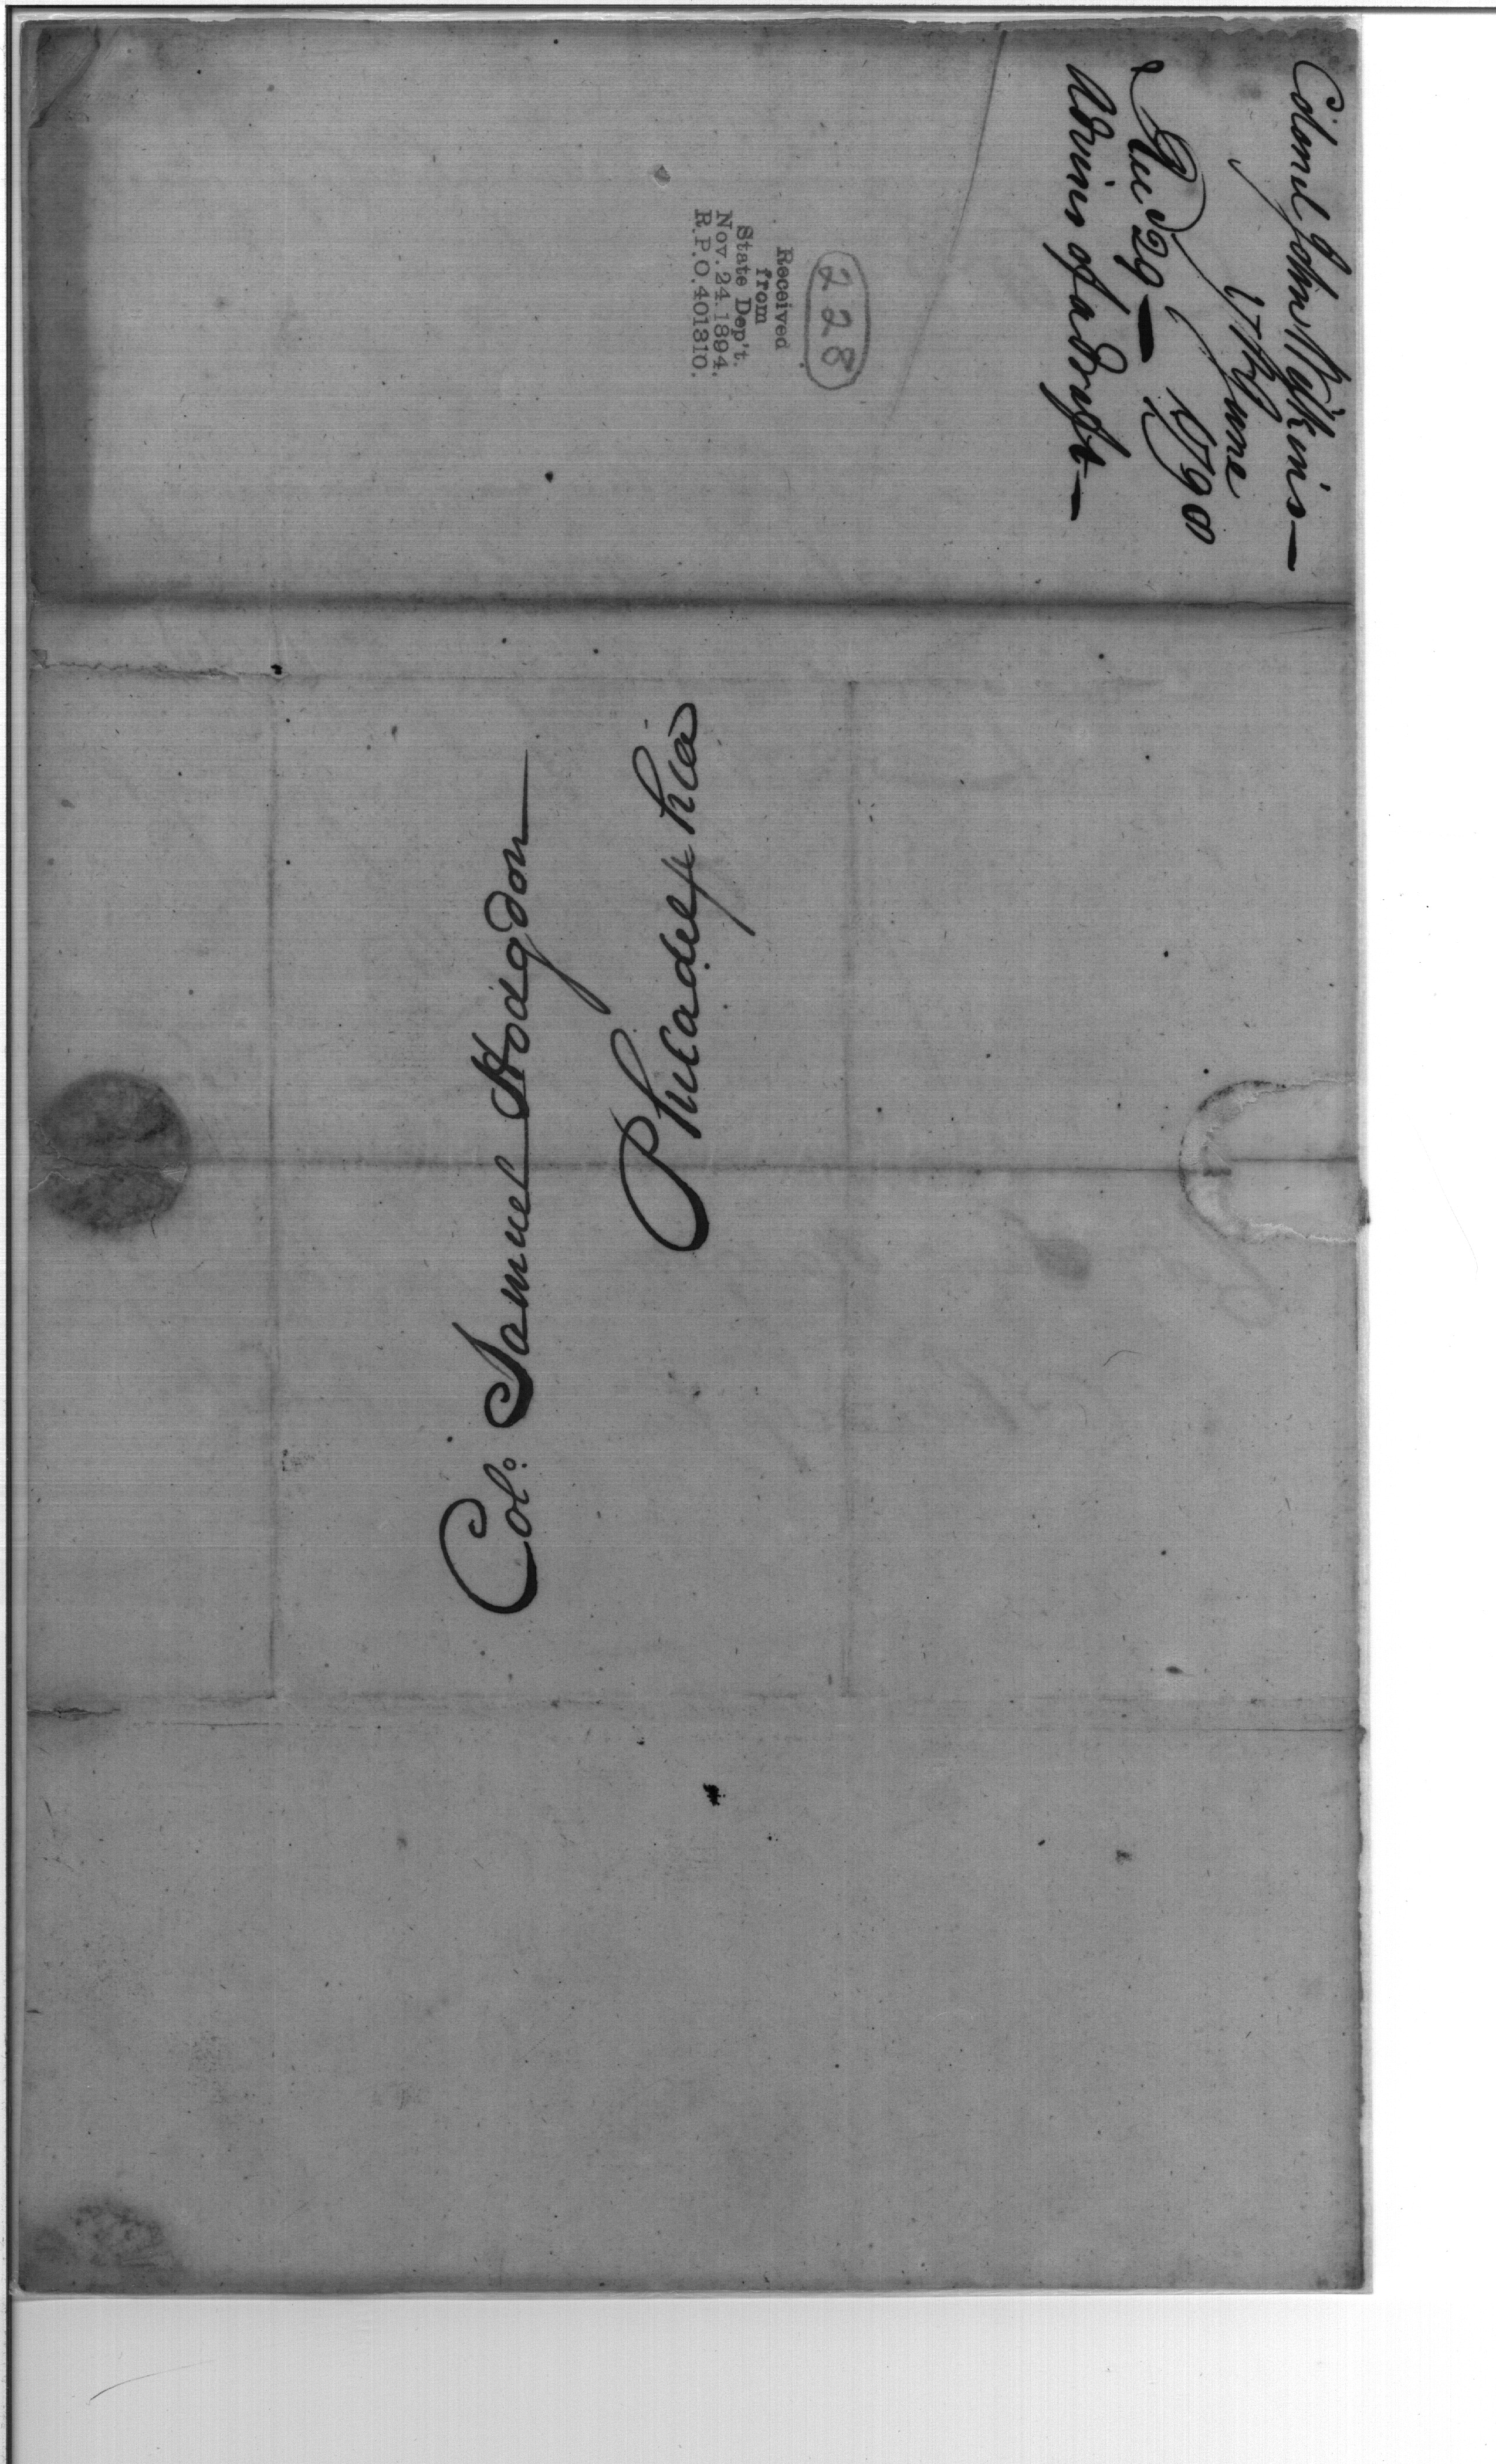 Colonel John Wilkins—
17th June
1798
Recd 29—
Advice of a draft—
228
Received
from
State Dep't.
Nov. 24. 1894.
R.P.O. 401310.
Col: Samuel Hodgdon
Philadelphia